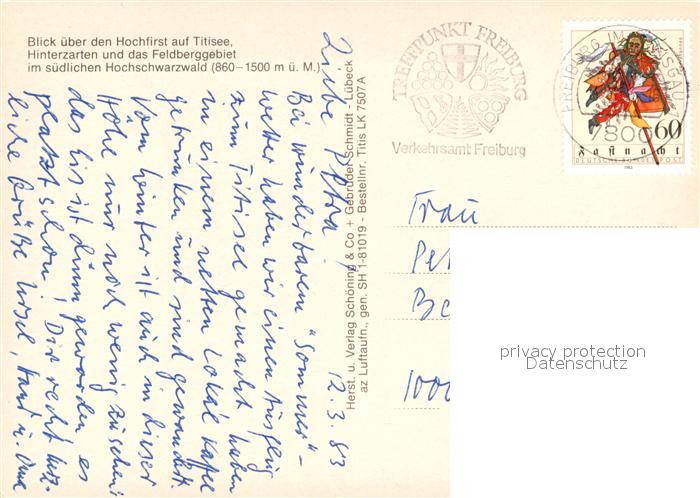 Blick über den Hochfirst auf Titisee,
Hinterzarten und das Feldberggebiet
im südlichen Hochschwarzwald (860–1500 m ü. M.)
Liebe Petra!
12.3.83
Bei wunderbarem "Sommer"-
wetter haben wir einen Ausflug
zum Titisee gemacht haben
in einem netten Lokal Kaffee
getrunken und sind gewandert.
Vom Winter ist auch in dieser
Höhe nur noch wenig zu sehen!
das Eis ist dünn geworden es
platzt schon! Dir recht herz-
liche Grüße Ursel, Hans u.
Herst. u. Verlag Schöning & Co + Gebrüder Schmidt - Lübeck
az Luftaufn., gen. SH 1-81019 - Bestellnr. Titis LK 7507 A
TREFFPUNKT FREIBURG
Verkehrsamt Freiburg
FREIBURG IM BREISGAU
7800
60
Fastnacht
DEUTSCHE BUNDESPOST
1983
Frau
Pet
Be
1000
privacy protection
Datenschutz